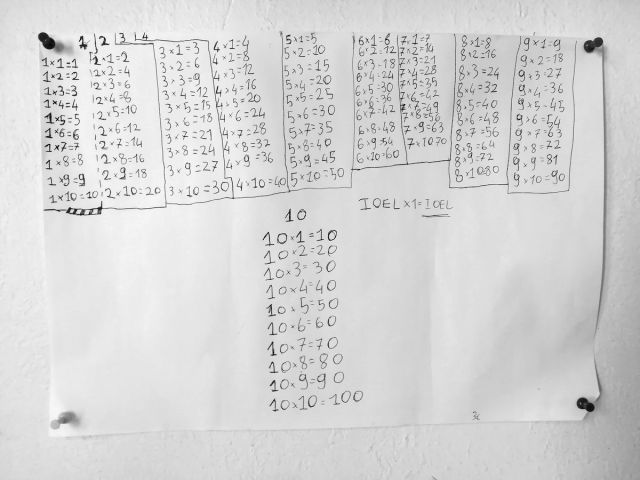 1 2 3 4
1×1=1
1×2=2
1×3=3
1×4=4
1×5=5
1×6=6
1×7=7
1×8=8
1×9=9
1×10=10
2×1=2
2×2=4
2×3=6
2×4=8
2×5=10
2×6=12
2×7=14
2×8=16
2×9=18
2×10=20
3×1=3
3×2=6
3×3=9
3×4=12
3×5=15
3×6=18
3×7=21
3×8=24
3×9=27
3×10=30
4×1=4
4×2=8
4×3=12
4×4=16
4×5=20
4×6=24
4×7=28
4×8=32
4×9=36
4×10=40
5×1=5
5×2=10
5×3=15
5×4=20
5×5=25
5×6=30
5×7=35
5×8=40
5×9=45
5×10=50
6×1=6
6×2=12
6×3=18
6×4=24
6×5=30
6×6=36
6×7=42
6×8=48
6×9=54
6×10=60
7×1=7
7×2=14
7×3=21
7×4=28
7×5=35
7×6=42
7×7=49
7×8=56
7×9=63
7×10=70
8×1=8
8×2=16
8×3=24
8×4=32
8×5=40
8×6=48
8×7=56
8×8=64
8×9=72
8×10=80
9×1=9
9×2=18
9×3=27
9×4=36
9×5=45
9×6=54
9×7=63
9×8=72
9×9=81
9×10=90
IOEL×1=IOEL
10
10×1=10
10×2=20
10×3=30
10×4=40
10×5=50
10×6=60
10×7=70
10×8=80
10×9=90
10×10=100